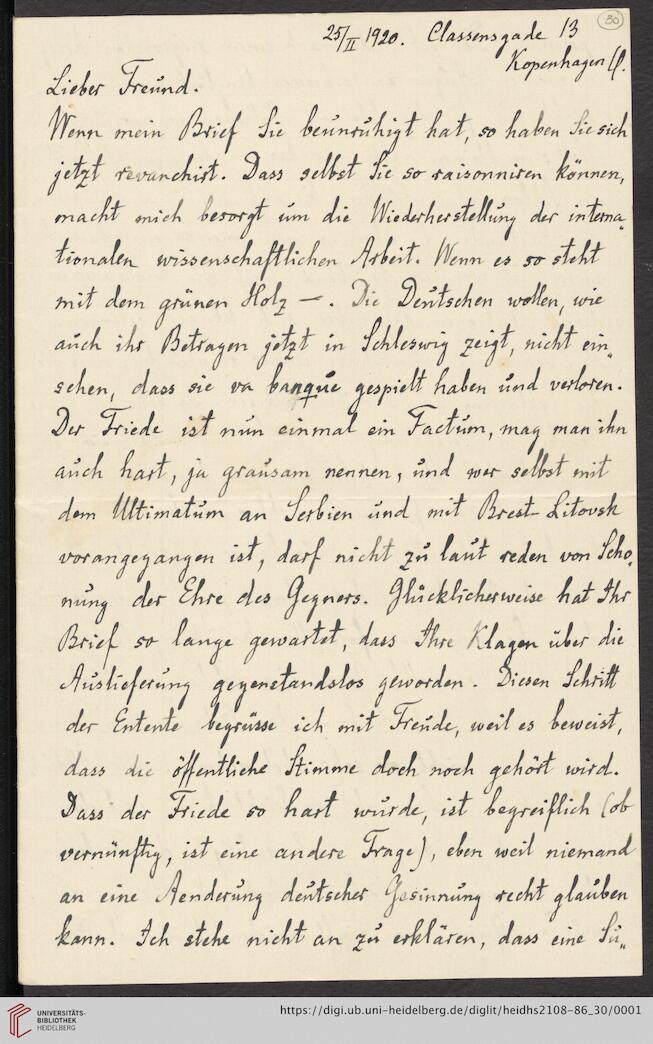 30
25/II 1920. Classensgade 13
Kopenhagen Ø.
Lieber Freund.
Wenn mein Brief Sie beunruhigt hat, so haben Sie sich
jetzt revanchirt. Dass selbst Sie so raisonniren können,
macht mich besorgt um die Wiederherstellung der interna„
tionalen wissenschaftlichen Arbeit. Wenn es so steht
mit dem grünen Holz —. Die Deutschen wollen, wie
auch ihr Betragen jetzt in Schleswig zeigt, nicht ein„
sehen, dass sie va banque gespielt haben und verloren.
Der Friede ist nun einmal ein Factum, mag man ihn
auch hart, ja grausam nennen, und wer selbst mit
dem Ultimatum an Serbien und mit Brest-Litovsk
vorangegangen ist, darf nicht zu laut reden von Scho„
nung der Ehre des Gegners. Glücklicherweise hat Ihr
Brief so lange gewartet, dass Ihre Klagen über die
Auslieferung gegenstandslos geworden. Diesen Schritt
der Entente begrüsse ich mit Freude, weil es beweist,
dass die öffentliche Stimme doch noch gehört wird.
Dass der Friede so hart wurde, ist begreiflich (ob
vernünftig, ist eine andere Frage), eben weil niemand
an eine Aenderung deutscher Gesinnung recht glauben
kann. Ich stehe nicht an zu erklären, dass eine Sü„
UNIVERSITÄTS-
BIBLIOTHEK
HEIDELBERG
https://digi.ub.uni-heidelberg.de/diglit/heidhs2108-86_30/0001